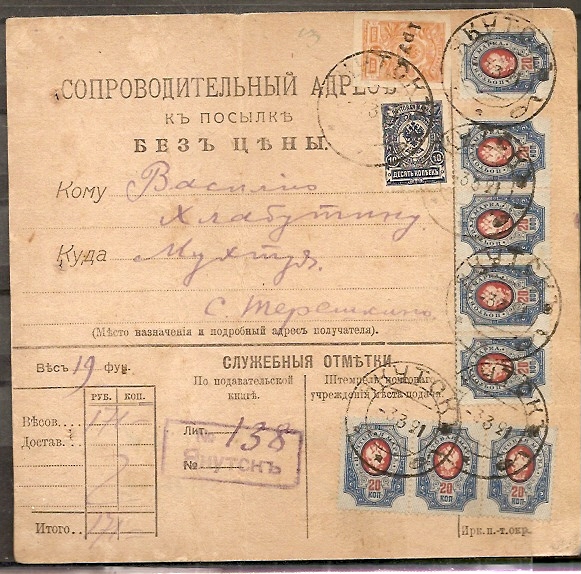 СОПРОВОДИТЕЛЬНЫЙ АДРЕСЪ
КЪ ПОСЫЛКѢ
БЕЗЪ ЦѢНЫ.
Кому Василію
Хлабутину
Куда Мухтуя
с. Терешкино
(Мѣсто назначенія и подробный адресъ получателя).
Вѣсъ 19 фун.
СЛУЖЕБНЫЯ ОТМѢТКИ.
По подавательской книгѣ.
Штемпель почтоваго учрежденія мѣста подачи.
РУБ. КОП.
Вѣсов.
Достав.
Итого..
Лит.
№ 138
№ ЯКУТСКЪ
Ирк.п.-т.окр.
ДЕСЯТЬ КОПѢЕКЪ
10 10
20
20
20
20
20
20 КОП
20 КОП
20 КОП
ЯКУТСК
3 3 21